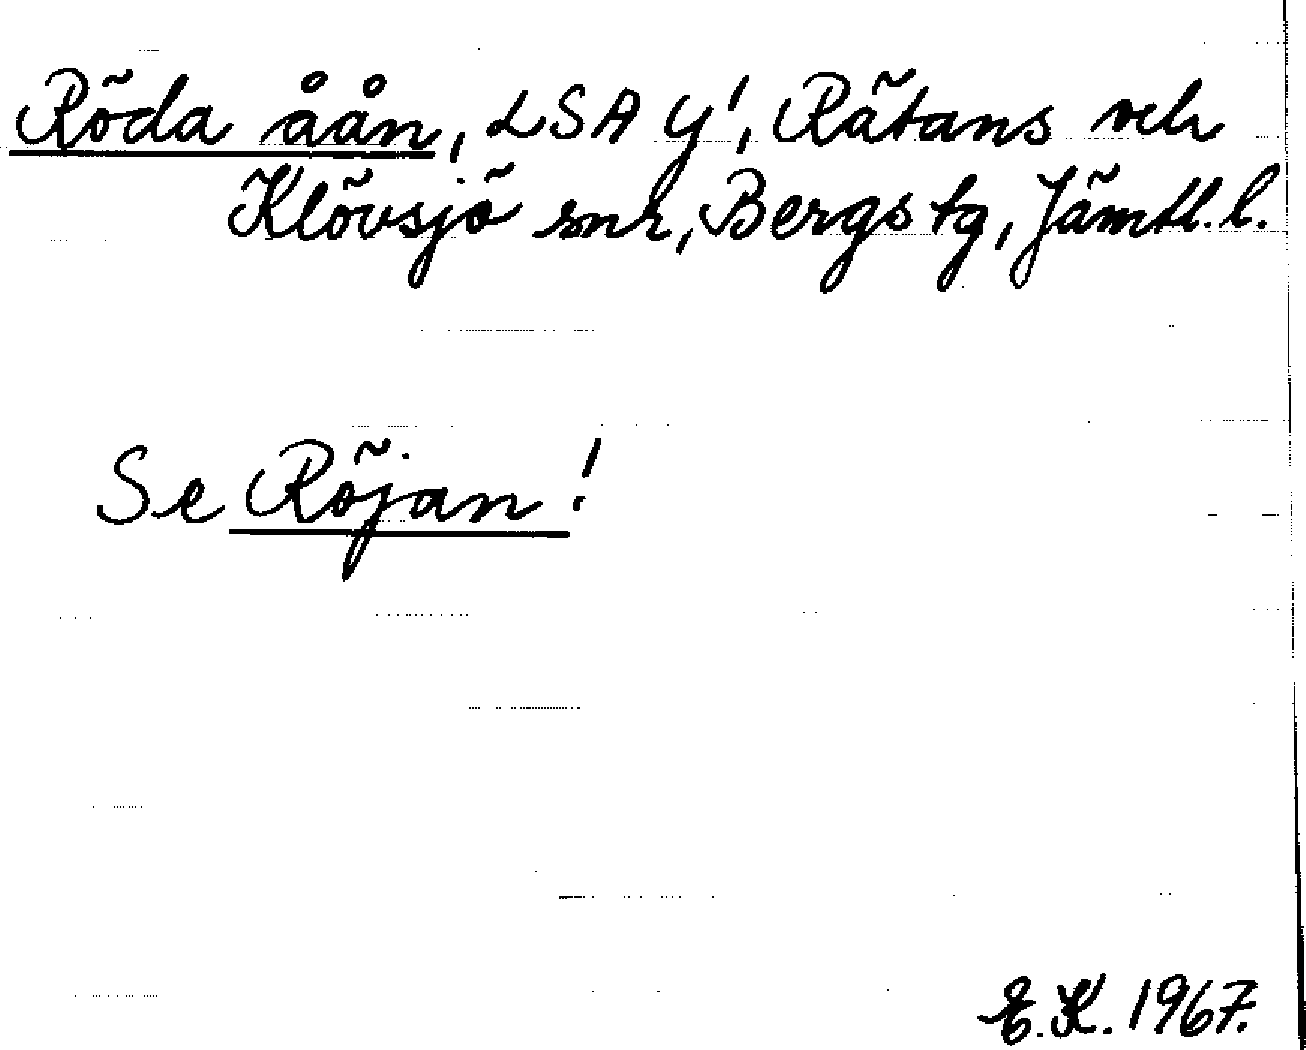 Röda åån, LSA Y!, Rätans och
Klövsjö snr, Bergs tg, Jämtl. l.
Se Röjan!
E.K. 1967.